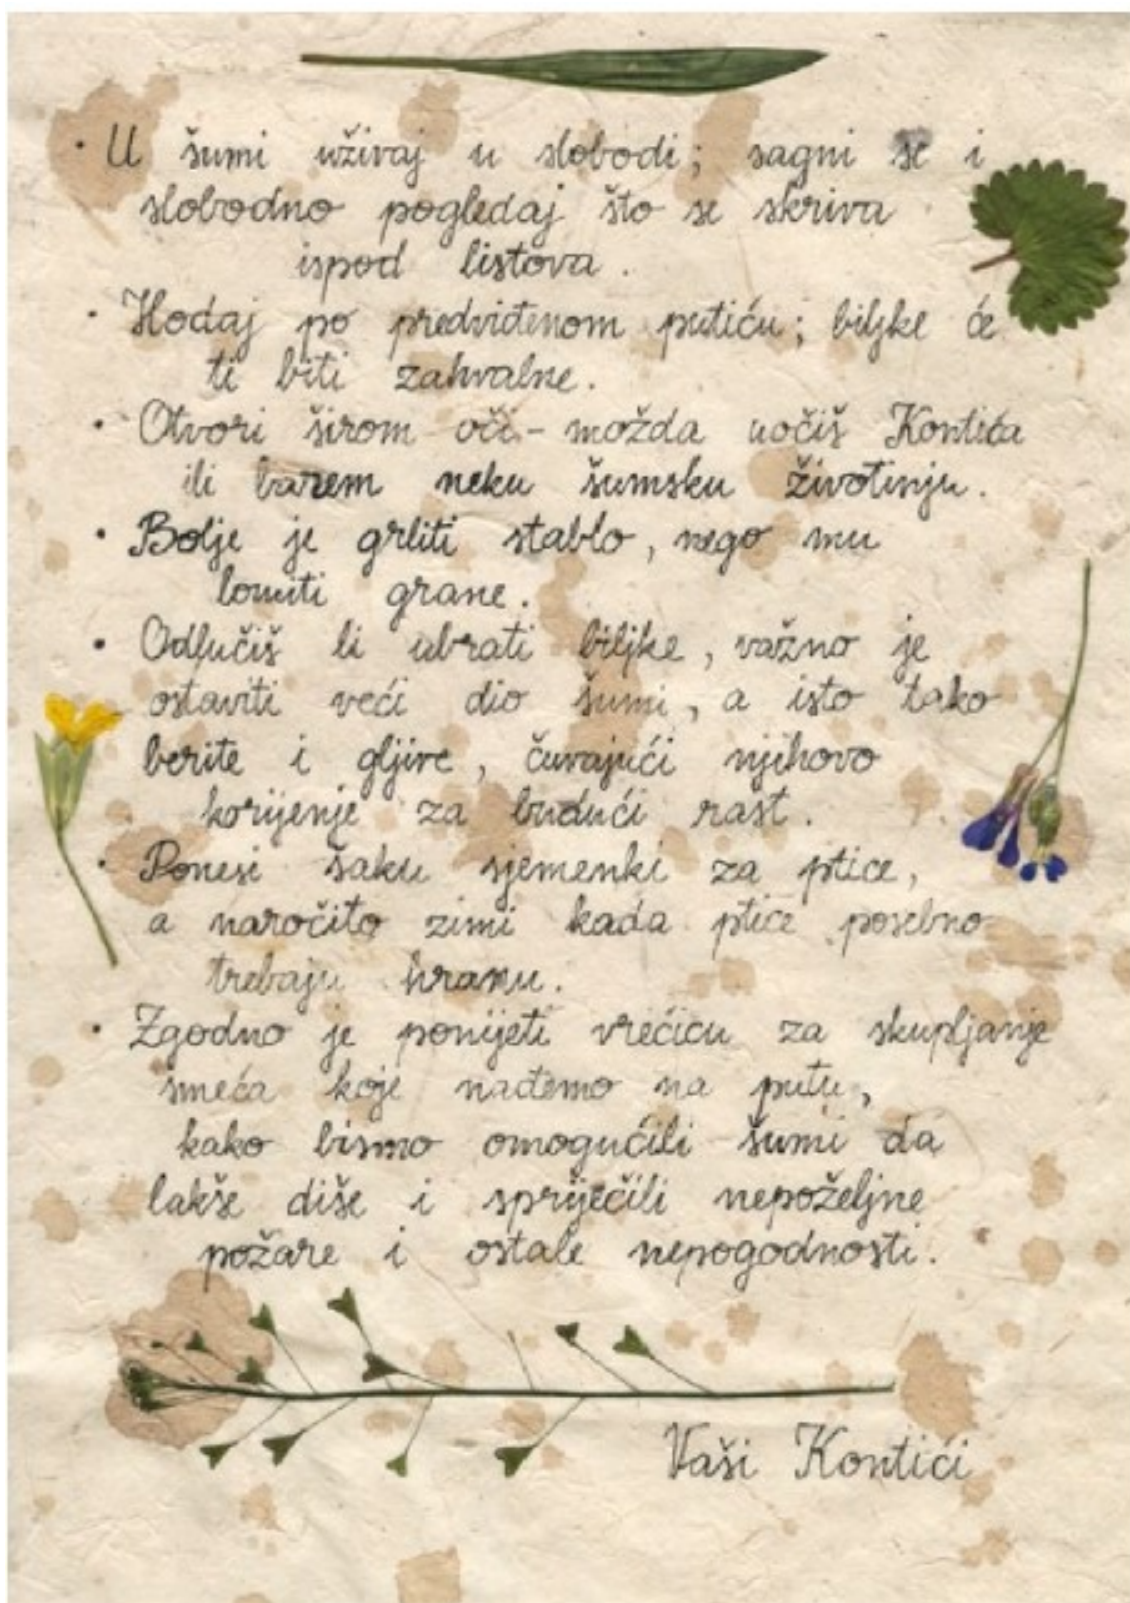 · U šumi uživaj u slobodi; sagni se i
slobodno pogledaj što se skriva
ispod listova.
· Hodaj po predviđenom putiću; biljke će
ti biti zahvalne.
· Otvori širom oči - možda uočiš Kontića
ili barem neku šumsku životinju.
· Bolje je grliti stablo, nego mu
lomiti grane.
· Odlučiš li ubrati biljke, važno je
ostaviti veći dio šumi, a isto tako
berite i gljive, čuvajući njihovo
korijenje za budući rast.
· Ponesi šaku sjemenki za ptice,
a naročito zimi kada ptice posebno
trebaju hranu.
· Zgodno je ponijeti vrećicu za skupljanje
smeća koje nađemo na putu,
kako bismo omogućili šumi da
lakše diše i spriječili nepoželjne
požare i ostale nepogodnosti.
Vaši Kontići